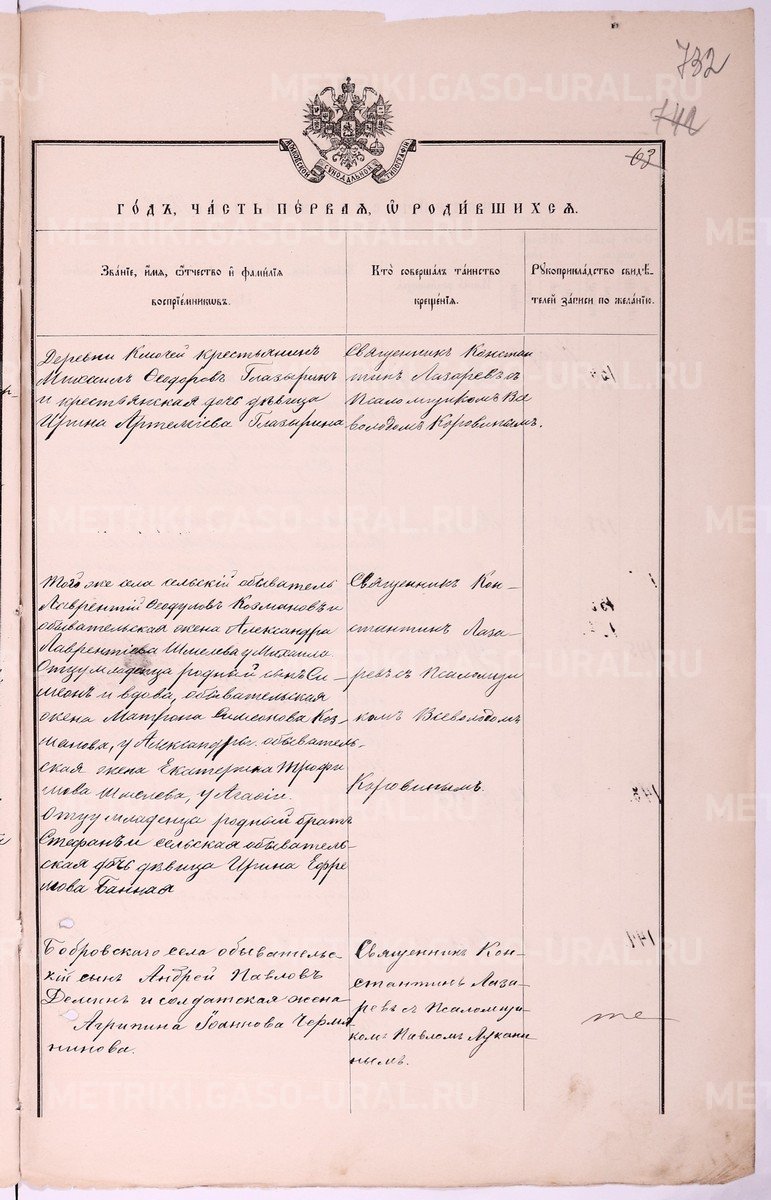 732
742
63
МОСКОВСКОЙ СѴНОДАЛЬНОЙ ТИПОГРАФІИ
ГОДЪ, ЧАСТЬ ПЕРВАЯ, Ѽ РОДИВШИХСЯ.
Званіе, имя, ѻтчество и фамилія
воспріемниковъ.
Кто совершалъ таинство
крещенія.
Рукоприкладство свидѣ-
телей записи по желанію.
Деревни Ключей крестьянинъ
Михаилъ Ѳеодоровъ Глазыринъ
и крестьянская дочь дѣвица
Ирина Артеміева Глазырина
Священникъ Констан
тинъ Лазаревъ съ
Псаломщикомъ Все
володомъ Коровинымъ.
Того же села сельскій обыватель
Лаврентій Ѳеодуловъ Козмановъ и
обывательская жена Александра
Лаврентіева Шмелева у Михаила.
Отцу младенца родный сынъ Си-
меонъ и вдова, обывательская
жена Матрона Симеонова Коз-
манова, у Александры. обыватель-
ская жена Екатерина Трофи
мова Шмелева, у Агасіи.
Отцу младенца родный братъ
Стефанъ и сельская обыватель-
ская дочь дѣвица Ирина Ефре
мова Банная
Священникъ Кон-
стантинъ Лаза-
ревъ съ Псаломщи
комъ Всеволодомъ
Коровинымъ.
Бобровскаго села обывательс-
кій сынъ Андрей Павловъ
Деминъ и солдатская жена
Агрипина Іоаннова Чермя
нинова.
Священникъ Кон-
стантинъ Лаза-
ревъ съ Псаломщи
комъ Павломъ Лукани
нымъ.
METRIKI.GASO-URAL.RU